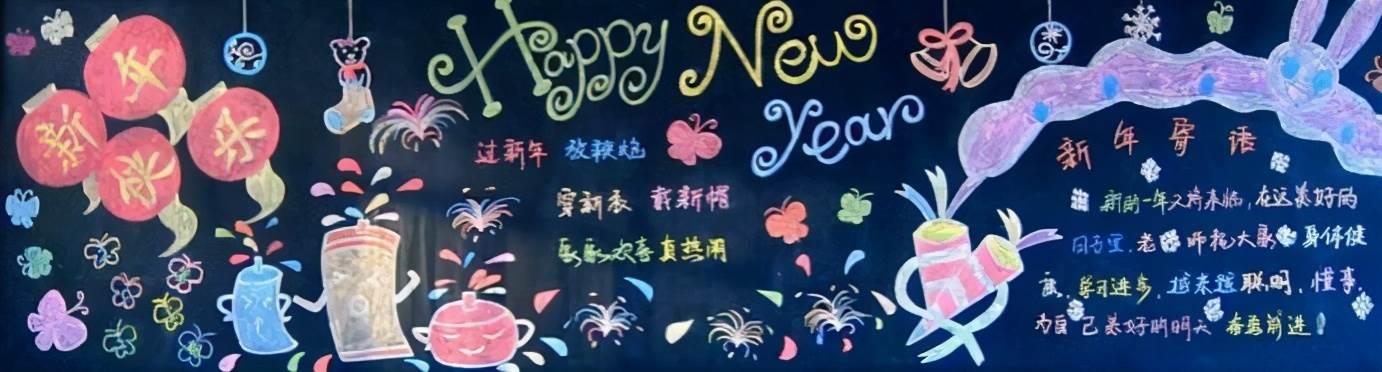 新年快乐
Happy New
Year
过新年 放鞭炮
穿新衣 戴新帽
欢喜真热闹
新年寄语
新的一年又将来临,在这美好的
日子里,老师祝大家身体健
康,学习进步,越来越聪明,懂事,
为自己美好的明天 奋勇前进!